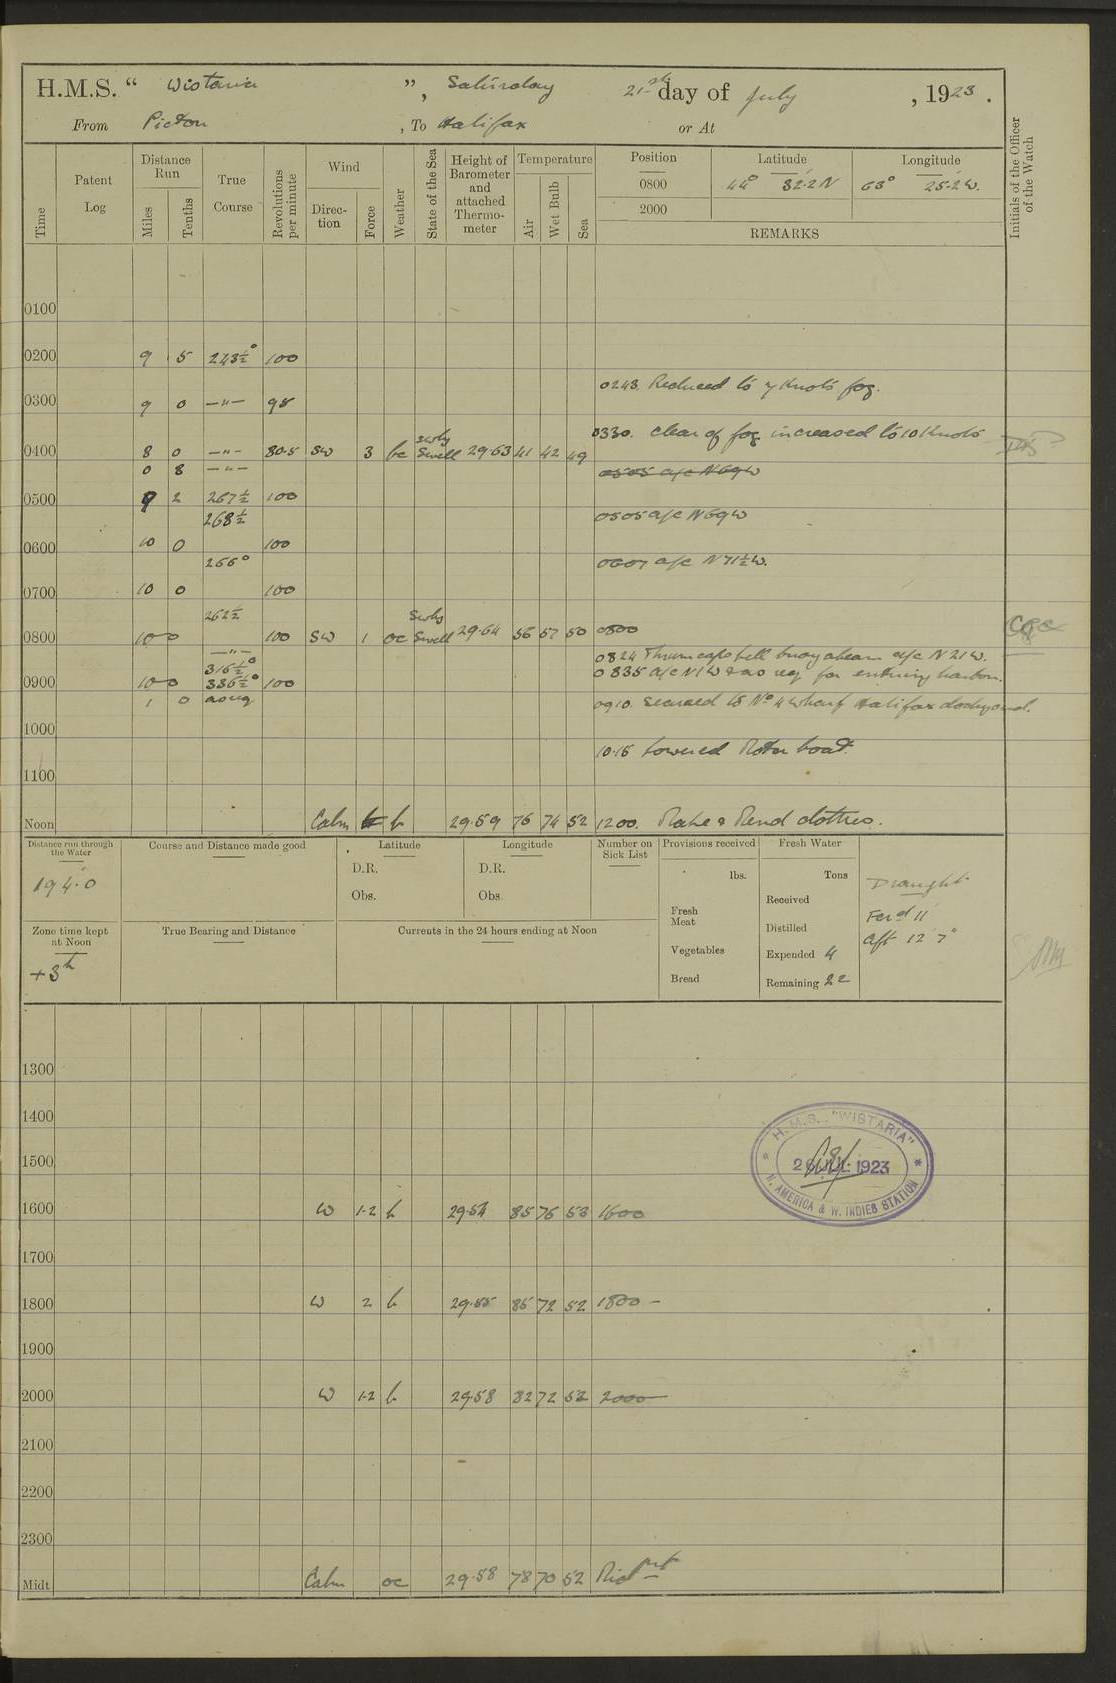 H.M.S. " Wistaria ", Saturday 21st day of July, 1923.
From Picton, To Halifax or At
Time
Patent Log
Distance Run
Miles
Tenths
True Course
Revolutions per minute
Wind
Direction
Force
Weather
State of the Sea
Height of Barometer and attached Thermometer
Temperature
Air
Wet Bulb
Sea
Position
Latitude
Longitude
0800 44° 32.2 N 63° 25.2 W.
2000
REMARKS
Initials of the Officer of the Watch
0100
0200 9 5 243½° 100
0243. Reduced to 7 Knots fog.
0300 9 0 —"— 98
0330. Clear of fog increased to 10 Knots
0400 8 0 —"— 80.5 SW 3 bc Swly Swell 29.63 41 42 49
0 8 —"— 0505 a/c N69W
0500 9 2 267½ 100
268½ 0505 a/c N69W
0600 10 0 100
266° 0607 a/c N71½W.
0700 10 0 100
262½
0800 10 0 100 SW 1 oc Swly Swell 29.64 56 57 50 0800
—"— 0824 Thrumcap bell buoy abeam a/c N21W.
316½° 0835 a/c N1W & as req for entering harbour.
0900 10 0 336½° 100
1 0 as req 0910. Secured to No 4 wharf Halifax dockyard.
1000
10.15 Lowered Motor boat.
1100
Noon Calm b 29.59 76 74 52 1200. Make & Mend clothes.
Distance run through the Water
194.0
Course and Distance made good
Latitude
D.R.
Obs.
Longitude
D.R.
Obs.
Number on Sick List
Provisions received
lbs.
Fresh Meat
Vegetables
Bread
Fresh Water
Tons
Received
Distilled
Expended 4
Remaining 22
Draught
For'd 11'
Aft 12' 7"
Zone time kept at Noon
+3h
True Bearing and Distance
Currents in the 24 hours ending at Noon
1300
1400
1500
H.M.S. "WISTARIA"
JUL 1923
N. AMERICA & W. INDIES STATION
1600 W 1-2 b 29.54 85 76 53 1600
1700
1800 W 2 b 29.55 85 72 52 1800 —
1900
2000 W 1-2 b 29.58 82 72 53 2000
2100
2200
2300
Midt Calm oc 29.58 78 70 52 Midnt